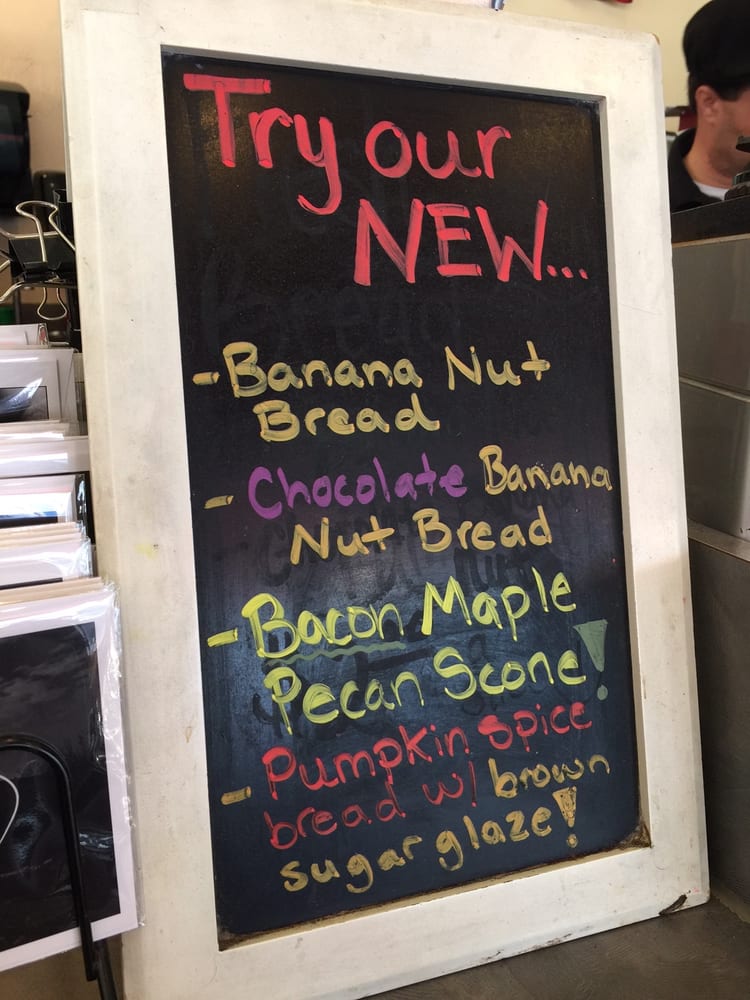 Try our
NEW...
- Banana Nut
Bread
- Chocolate Banana
Nut Bread
- Bacon Maple
Pecan Scone!
- Pumpkin spice
bread w/ brown
sugar glaze!